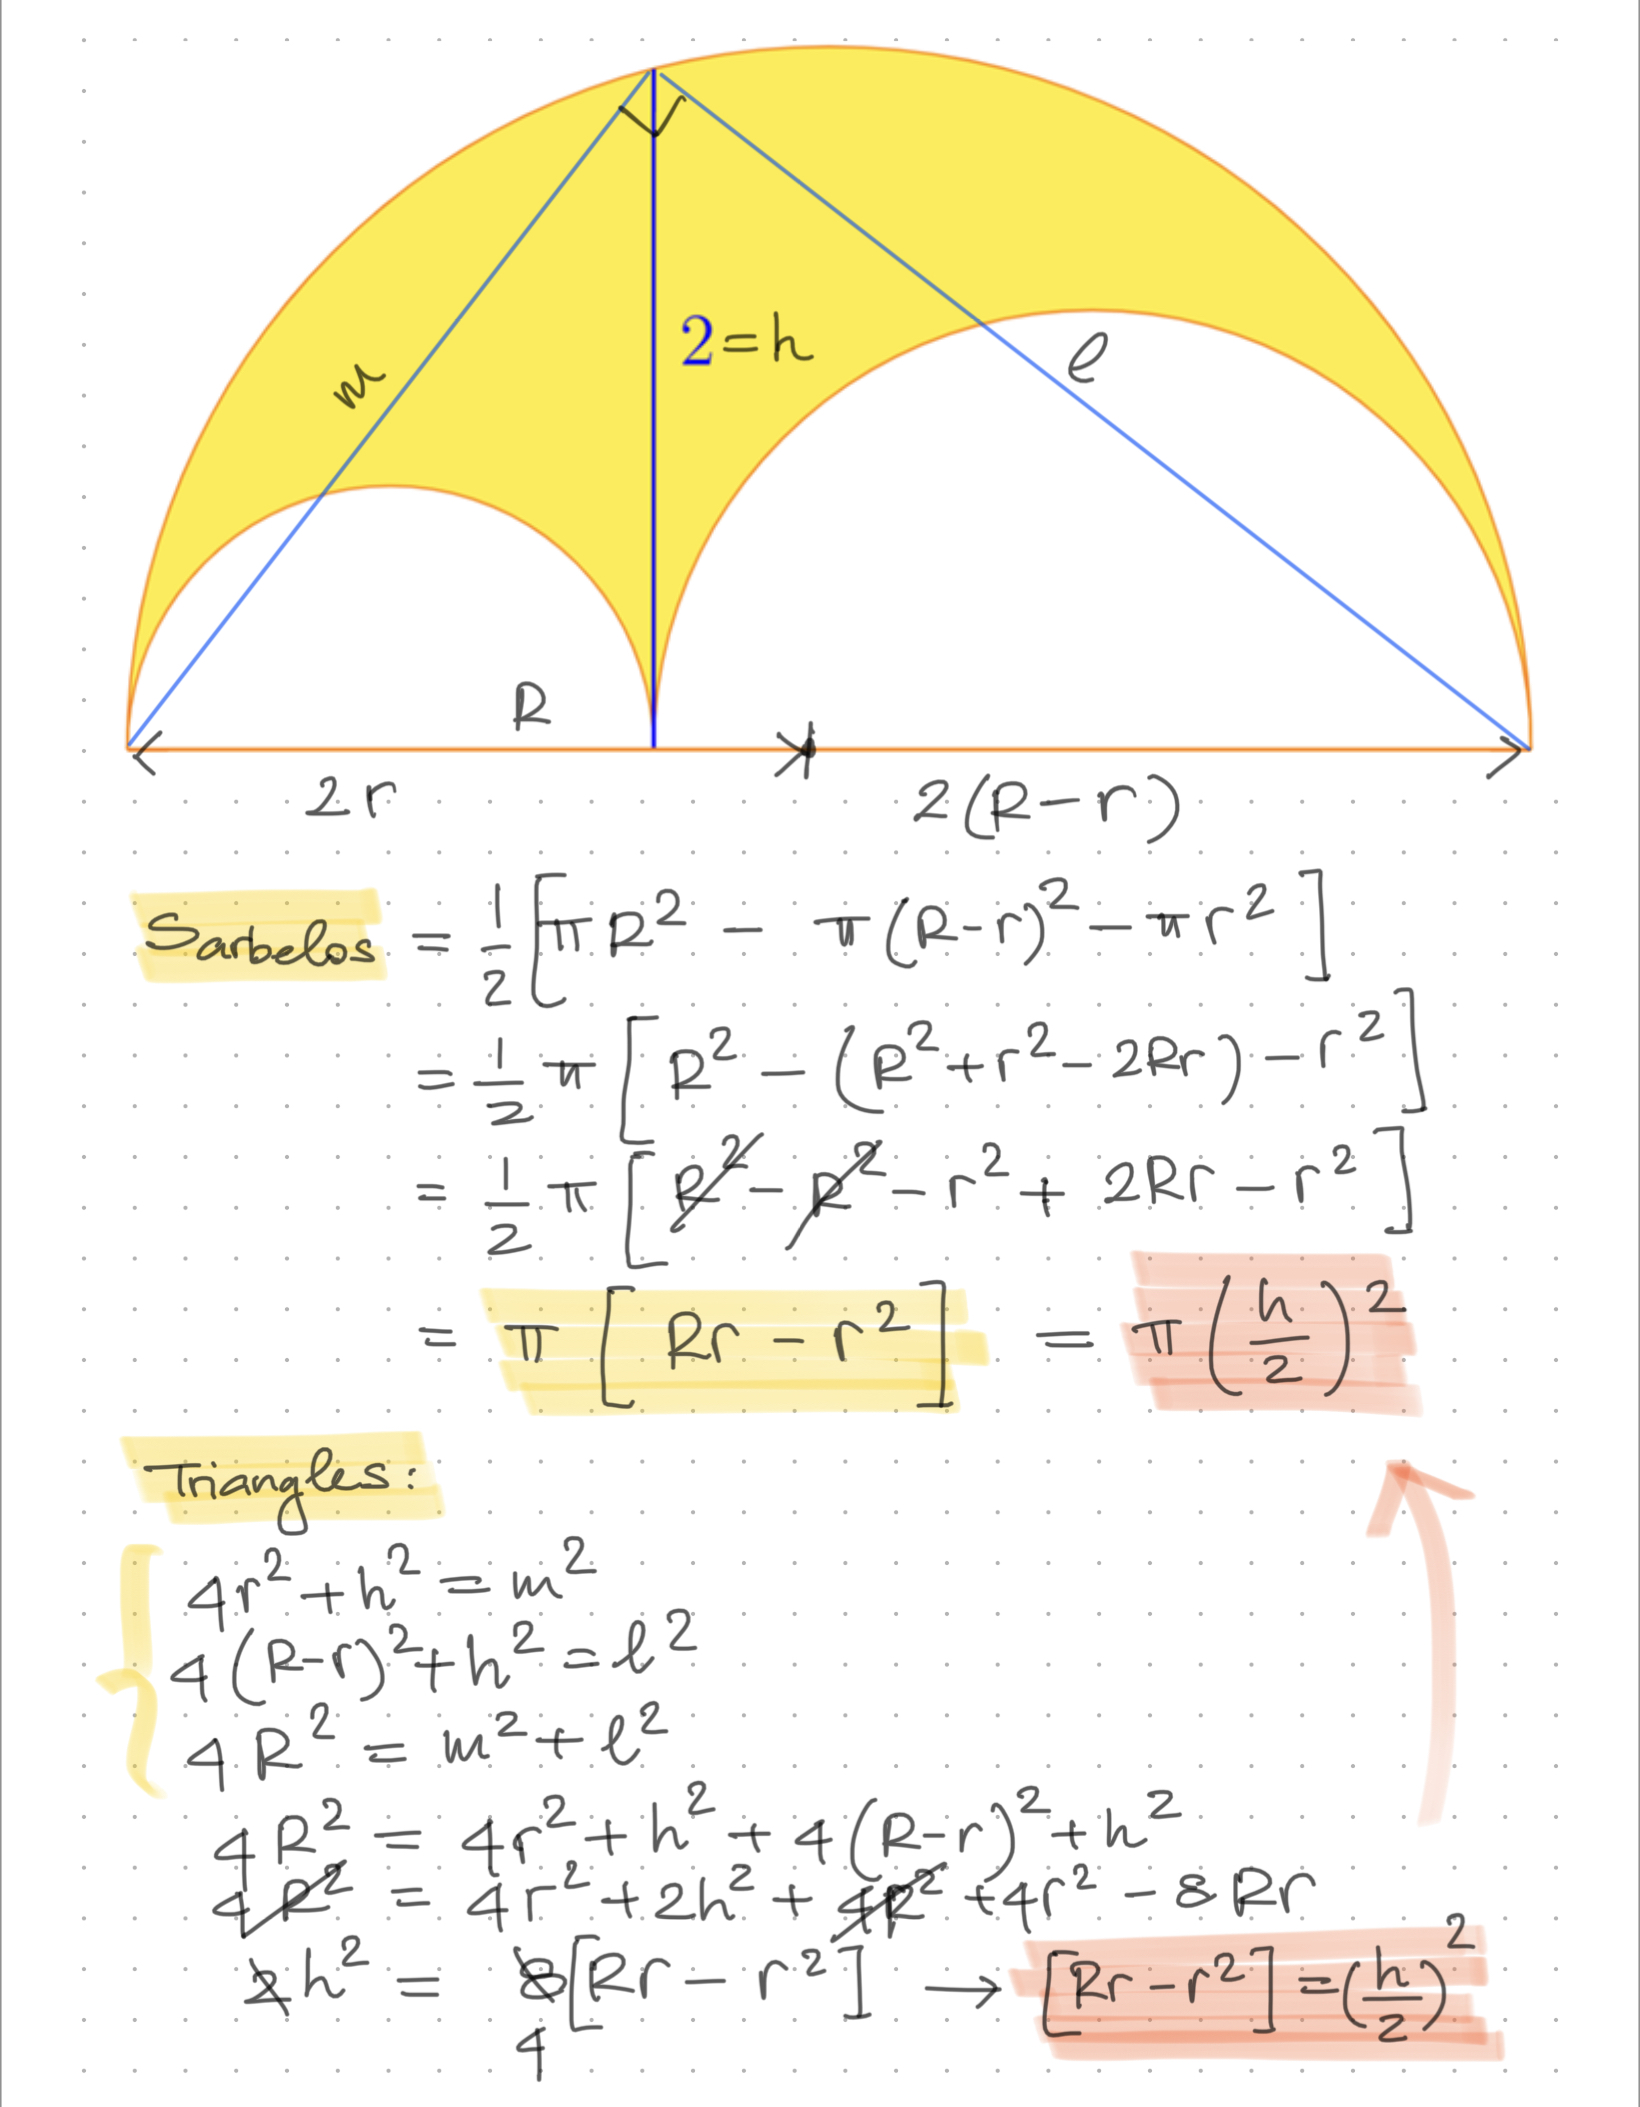 m
2=h
l
R
2r
2(R-r)
Sarbelos = 1/2 [πR² - π(R-r)² - πr²]
= 1/2 π [R² - (R²+r²-2Rr) - r²]
= 1/2 π [R² - R² - r² + 2Rr - r²]
= π [Rr - r²] = π(h/2)²
Triangles:
4r²+h² = m²
4(R-r)²+h² = l²
4R² = m²+l²
4R² = 4r²+h² + 4(R-r)²+h²
4R² = 4r²+2h² + 4R² +4r² - 8Rr
2h² = 8[Rr - r²] → [Rr - r²] = (h/2)²
4